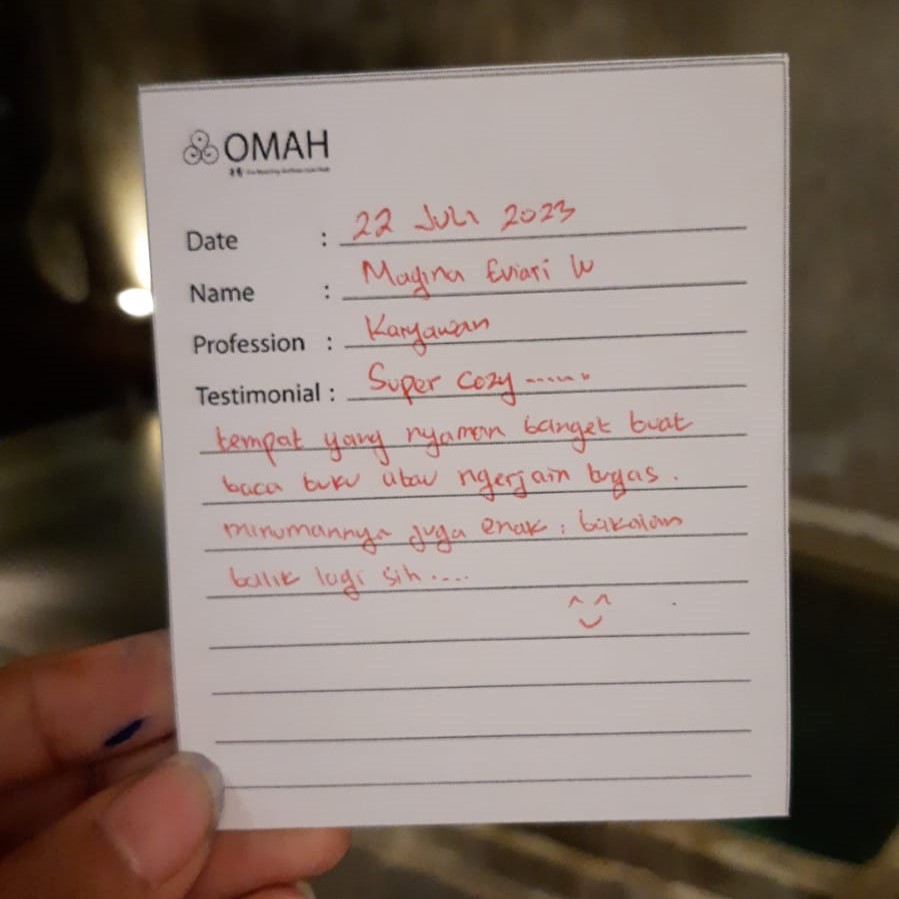 OMAH
Date : 22 JULI 2023
Name : Magina Eviari W
Profession : Karyawan
Testimonial : Super cozy ......
tempat yang nyaman banget buat
baca buku atau ngerjain tugas.
minumannya juga enak. bakalan
balik lagi sih....